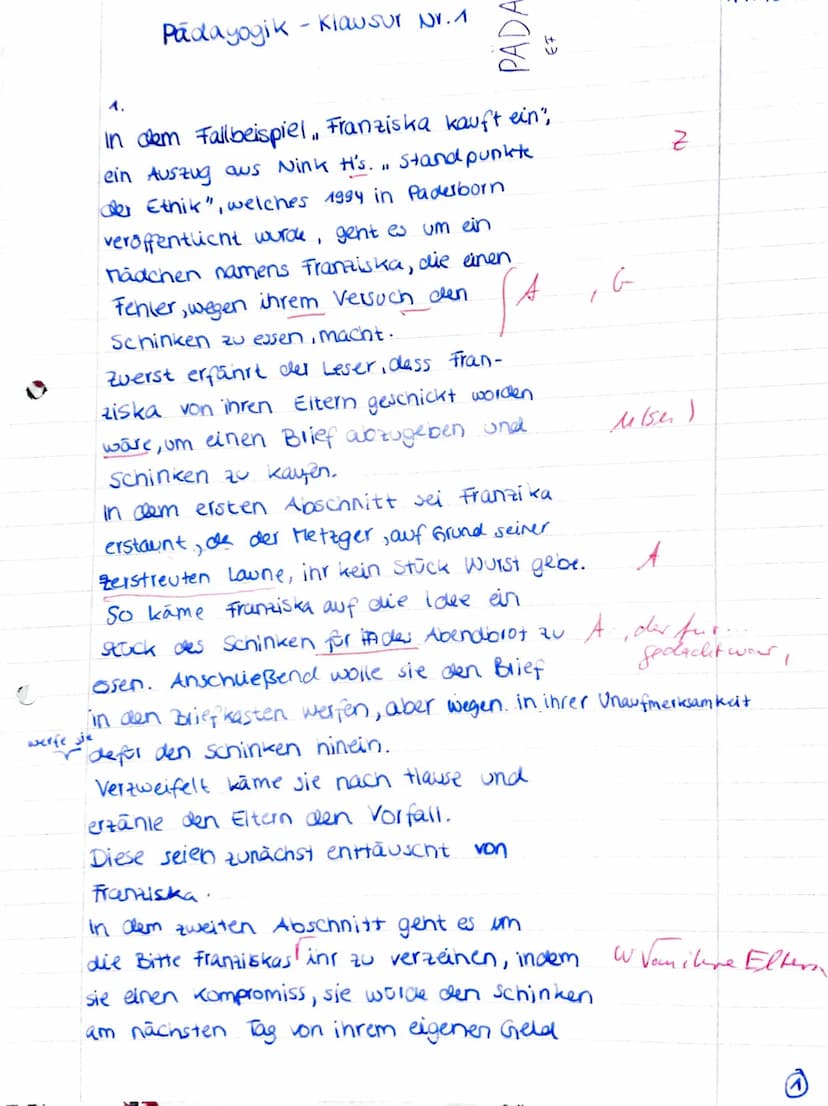 Pädagogik - Klausur Nr. 1
PÄDA
EF
1.
In dem Fallbeispiel „Franziska kauft ein",
Z
ein Auszug aus Nink H's. „Standpunkte
der Ethik", welches 1994 in Paderborn
veröffentlicht wurde, geht es um ein
Mädchen namens Franziska, die einen
Fehler, wegen ihrem Versuch den
A , G
Schinken zu essen, macht.
Zuerst erfährt der Leser, dass Fran-
ziska von ihren Eltern geschickt worden
wäre, um einen Brief abzugeben und
M (sei)
Schinken zu kaufen.
In dem ersten Abschnitt sei Franzika
erstaunt, da der Metzger, auf Grund seiner
zerstreuten Laune, ihr kein Stück Wurst gebe.
A
So käme Franziska auf die Idee ein
Stück des Schinken für das Abendbrot zu
A , der für...
gedacht war,
essen. Anschließend wolle sie den Brief
in den Briefkasten werfen, aber wegen in ihrer Unaufmerksamkeit
werfe sie
dafür den Schinken hinein.
Verzweifelt käme sie nach Hause und
erzähle den Eltern den Vorfall.
Diese seien zunächst enttäuscht von
Franziska.
In dem zweiten Abschnitt geht es um
die Bitte Franziskas ihr zu verzeihen, indem
W von ihre Eltern
sie einen Kompromiss, sie würde den Schinken
am nächsten Tag von ihrem eigenen Geld
1